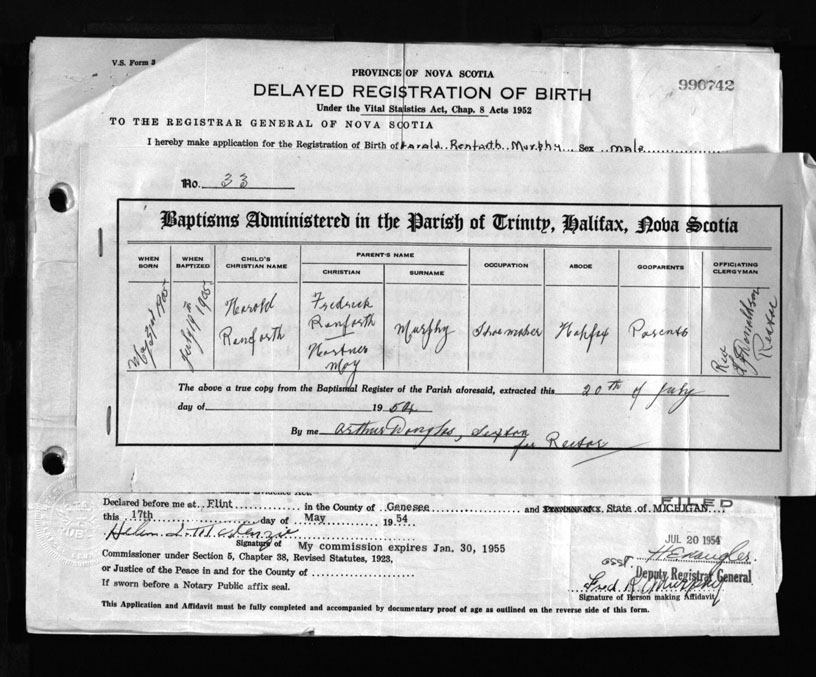 V.S. Form 3
PROVINCE OF NOVA SCOTIA
990742
DELAYED REGISTRATION OF BIRTH
Under the Vital Statistics Act, Chap. 8 Acts 1952
TO THE REGISTRAR GENERAL OF NOVA SCOTIA
I hereby make application for the Registration of Birth of Harald Murphy Sex male
No. 33
Baptisms Administered in the Parish of Trinity, Halifax, Nova Scotia
WHEN BORN WHEN BAPTIZED CHILD'S CHRISTIAN NAME PARENT'S NAME OCCUPATION ABODE GODPARENTS OFFICIATING CLERGYMAN
CHRISTIAN SURNAME
May 23rd 1905 July 19th 1905 Harold Ranforth Fredrick Ranforth May Murphy Shoemaker Halifax Parents Rev Donaldson Rector
The above a true copy from the Baptismal Register of the Parish aforesaid, extracted this 20th of July
day of 1954
By me Arthur Douglas, Sexton
for Rector
Declared before me at Flint in the County of Genesee and State of MICHIGAN.
FILED
this 17th day of May 1954
JUL 20 1954
Signature of My commission expires Jan. 30, 1955
Commissioner under Section 5, Chapter 38, Revised Statutes, 1923,
asst.
or Justice of the Peace in and for the County of
Deputy Registrar General
If sworn before a Notary Public affix seal.
Fred R. Murphy
Signature of Person making Affidavit
This Application and Affidavit must be fully completed and accompanied by documentary proof of age as outlined on the reverse side of this form.